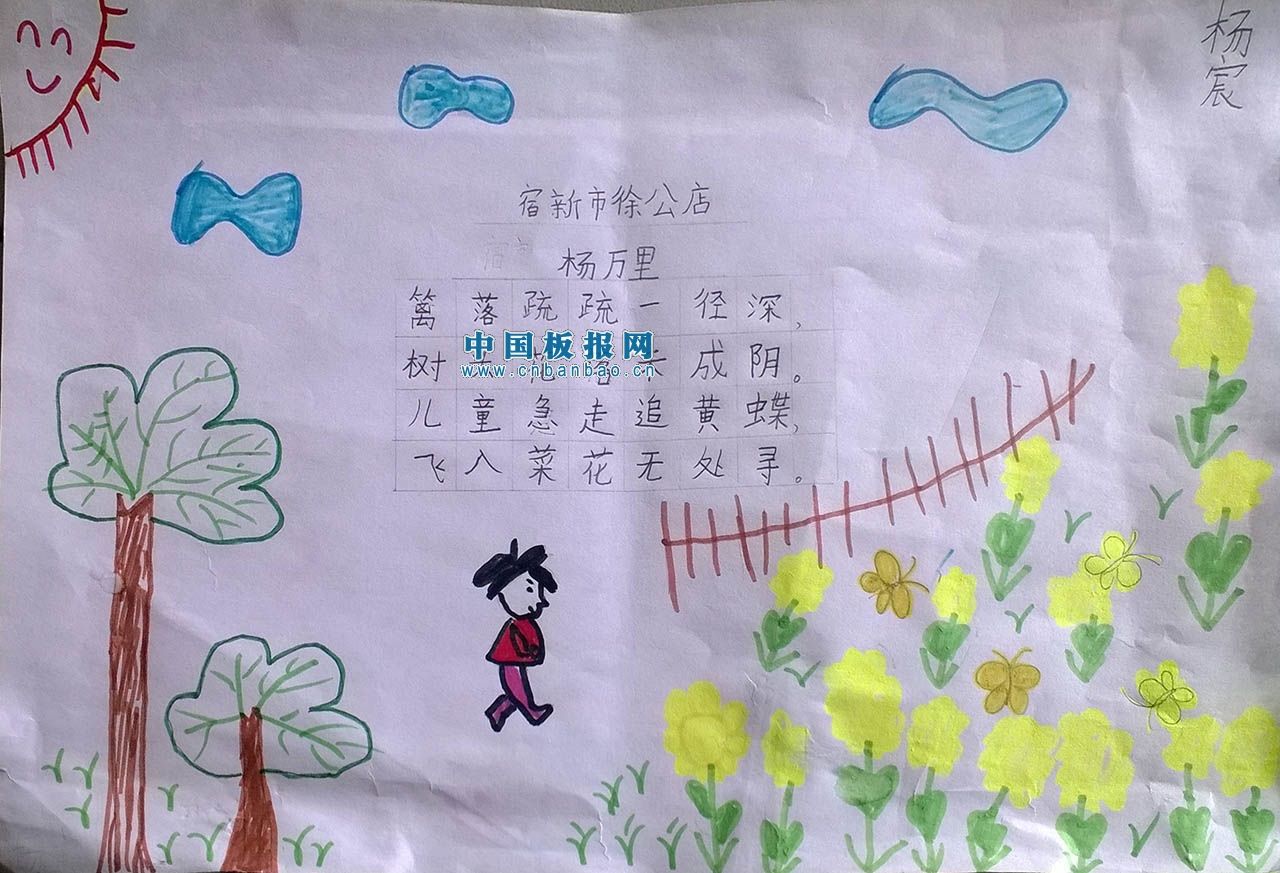 杨宸
宿新市徐公店
杨万里
篱落疏疏一径深，
树花落未成阴。
中国板报网
www.cnbanbao.cn
儿童急走追黄蝶，
飞入菜花无处寻。